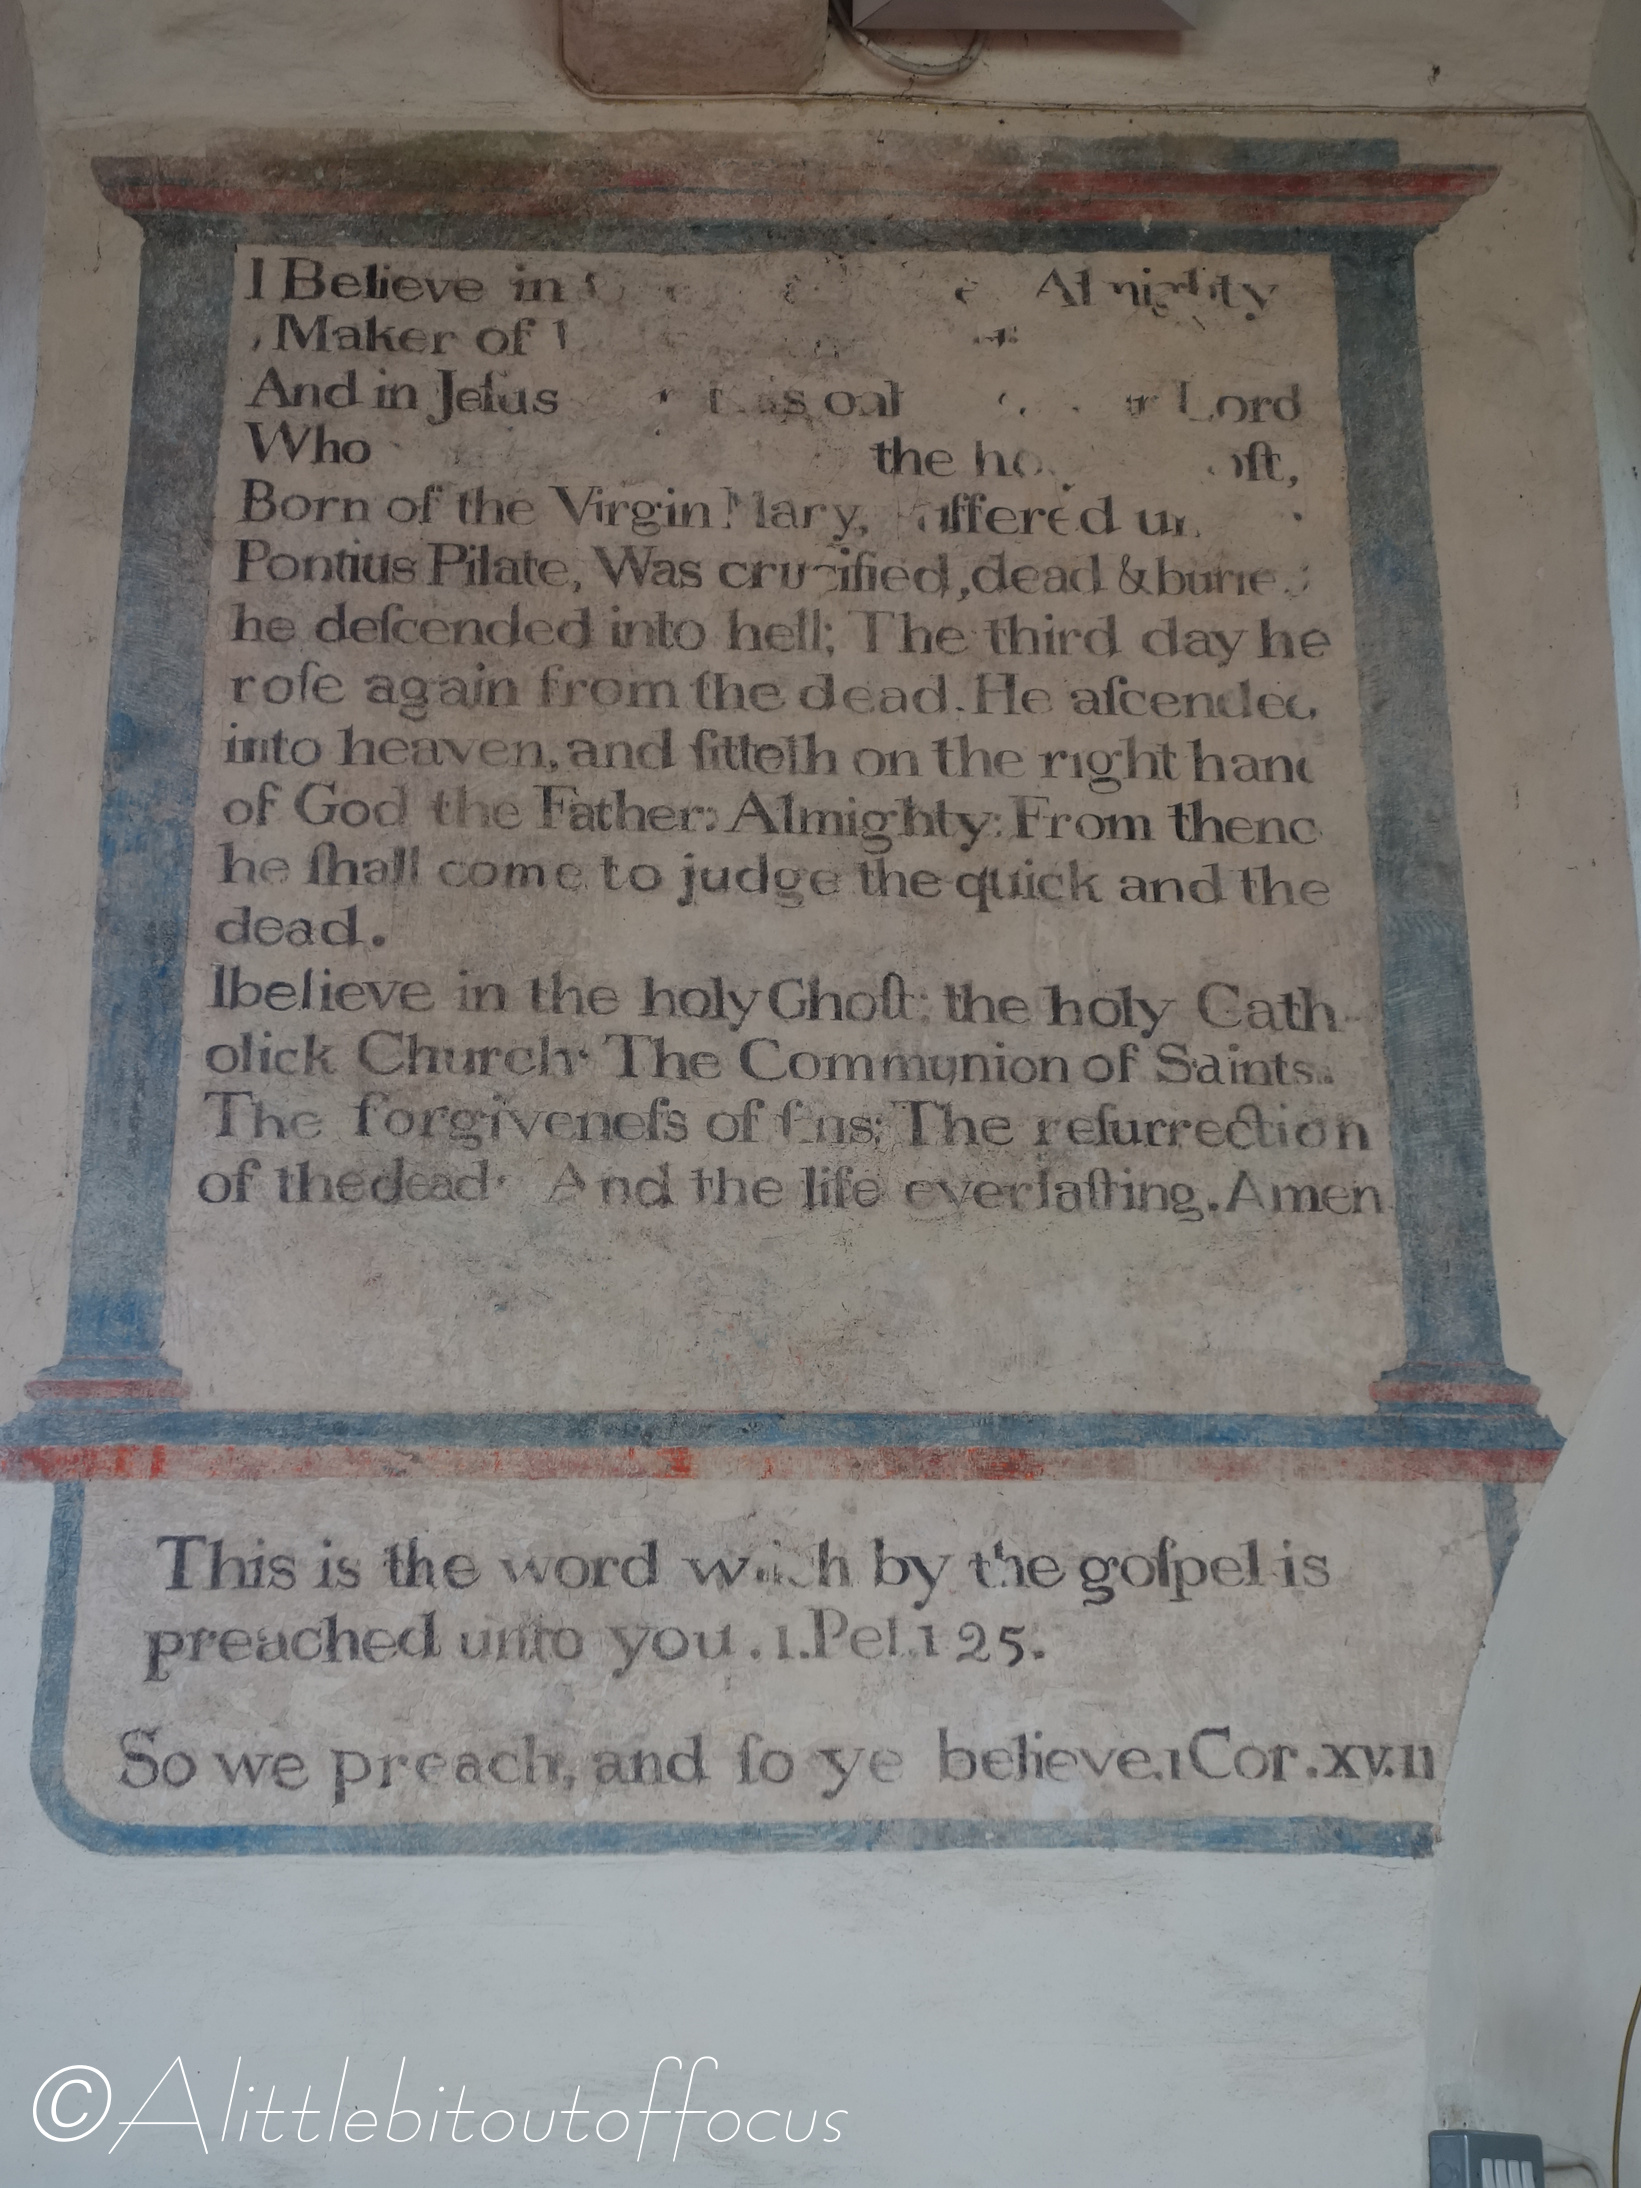 I Believe in Almighty
Maker of
And in Jeſus Lord
Who the
Born of the Virgin Mary, ſuffered
Pontius Pilate, Was crucified, dead & burie
he deſcended into hell; The third day he
roſe again from the dead. He aſcended
into heaven, and ſitteth on the right hand
of God the Father: Almighty: From thenc
he ſhall come to judge the quick and the
dead.
I believe in the holy Ghoſt; the holy Cath
olick Church· The Communion of Saints.
The forgiveneſs of ſins; The reſurrection
of the dead· And the life everlaſting. Amen
This is the word which by the goſpel is
preached unto you. 1. Pet. 1 25.
So we preach, and ſo ye believe. 1 Cor. xv. 11
©Alittlebitoutoffocus